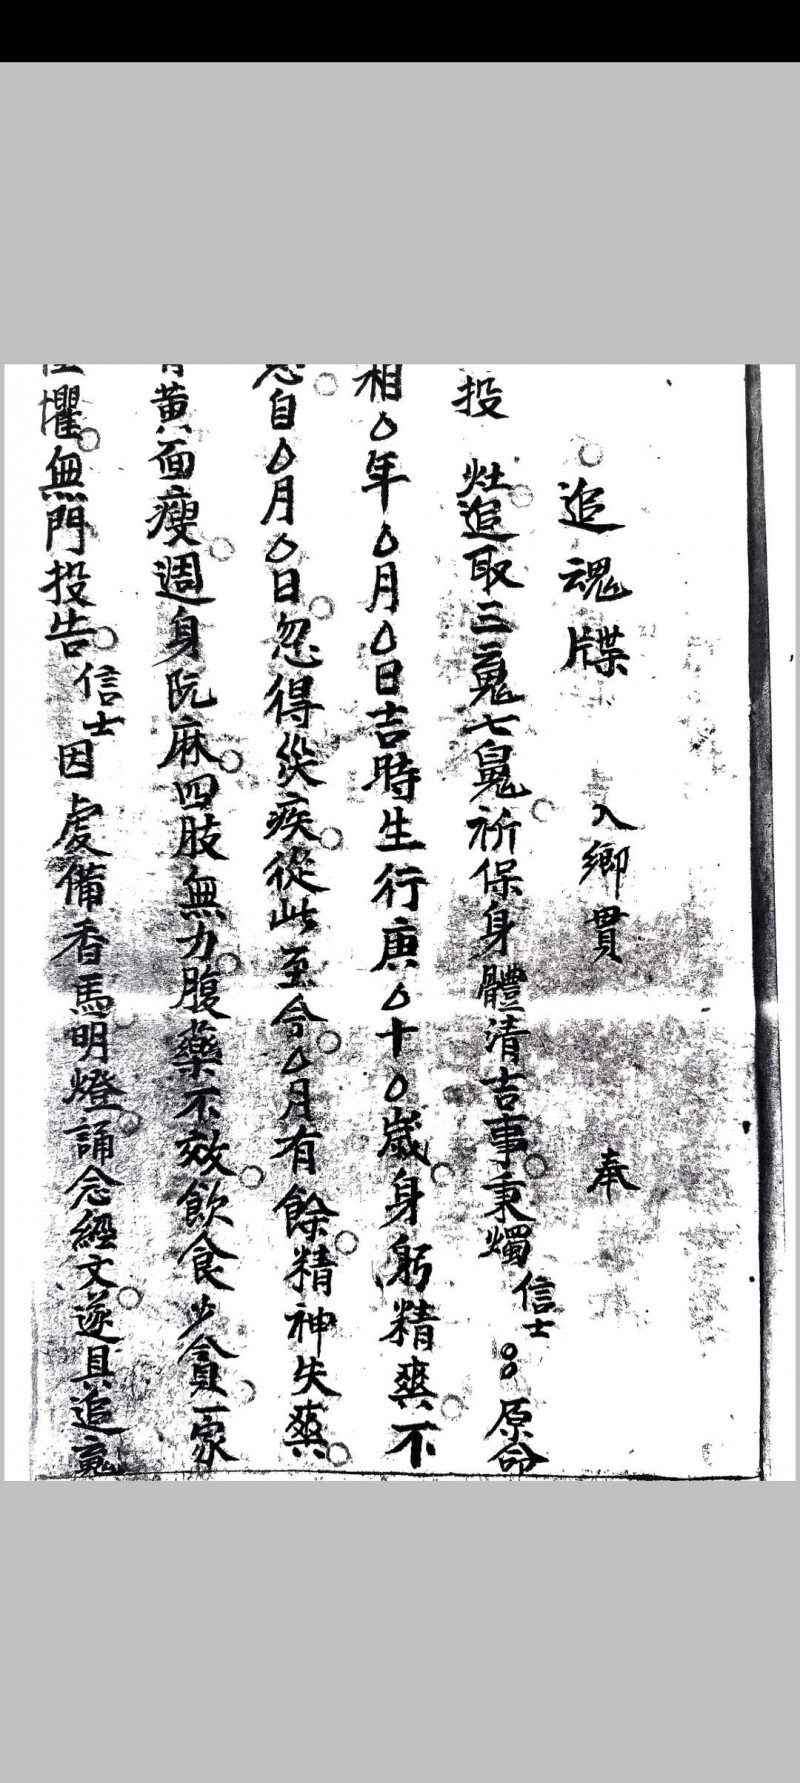 追魂牒 入鄉貫 奉
投 灶追取三魂七魄祈保身體清吉事秉燭信士 原命
相△年△月△日吉時生行庚△十△歲身躬精爽不
自△月△日忽得災疾從此至今△月有餘精神失爽
黃面瘦週身阮麻四肢無力腹藥不效飲食少貪一家
懼無門投告信士因虔備香馬明燈誦念經文逐具追魂